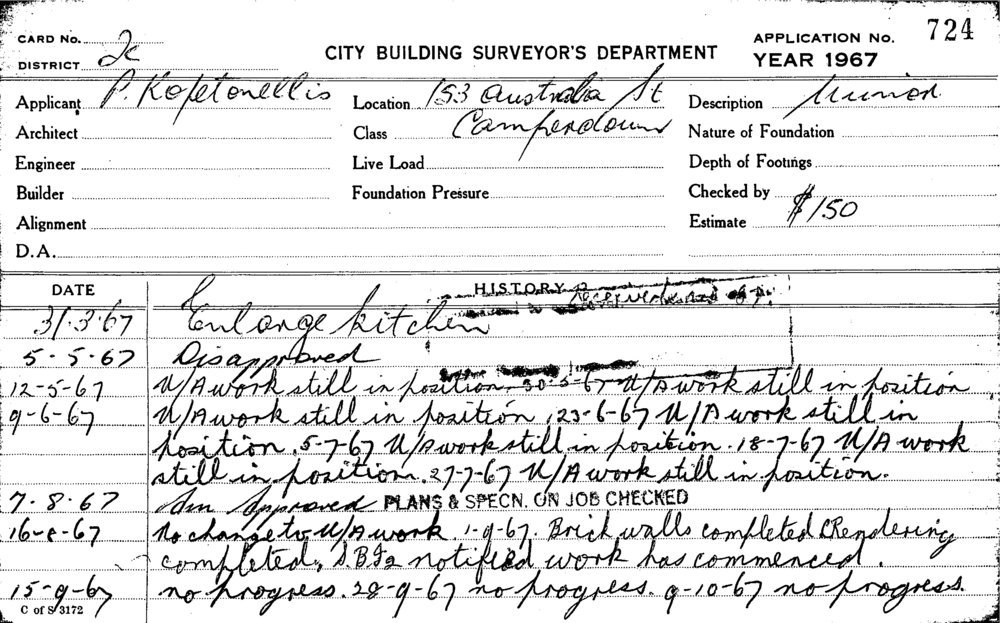 CARD No. 2c
DISTRICT
CITY BUILDING SURVEYOR'S DEPARTMENT
APPLICATION No. 724
YEAR 1967
Applicant P. Kopetonellis
Location 153 Australia St
Description
Architect
Class Camperdown
Nature of Foundation
Engineer
Live Load
Depth of Footings
Builder
Foundation Pressure
Checked by
Alignment
Estimate $150
D.A.
DATE
HISTORY
31.3.67 Enlarge kitchen
5-5-67 Disapproved
12-5-67 U/A work still in position 30-5-67 U/A work still in position
9-6-67 U/A work still in position, 23-6-67 U/A work still in
position. 5-7-67 U/A work still in position. 18-7-67 U/A work
still in position. 27-7-67 U/A work still in position.
7.8.67 Approved PLANS & SPECN. ON JOB CHECKED
16-8-67 No change to U/A work. 1-9-67. Brick walls completed & Rendering
completed, notified work has commenced.
15-9-67 no progress. 28-9-67 no progress. 9-10-67 no progress.
C of S 3172